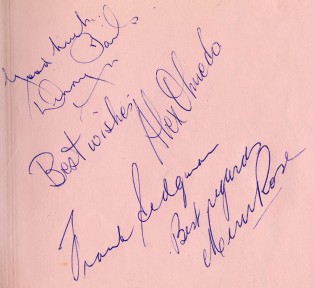 Good luck.
Denny Pails
Best wishes
Alex Olmedo
Frank Sedgman
Best regards
Merv Rose